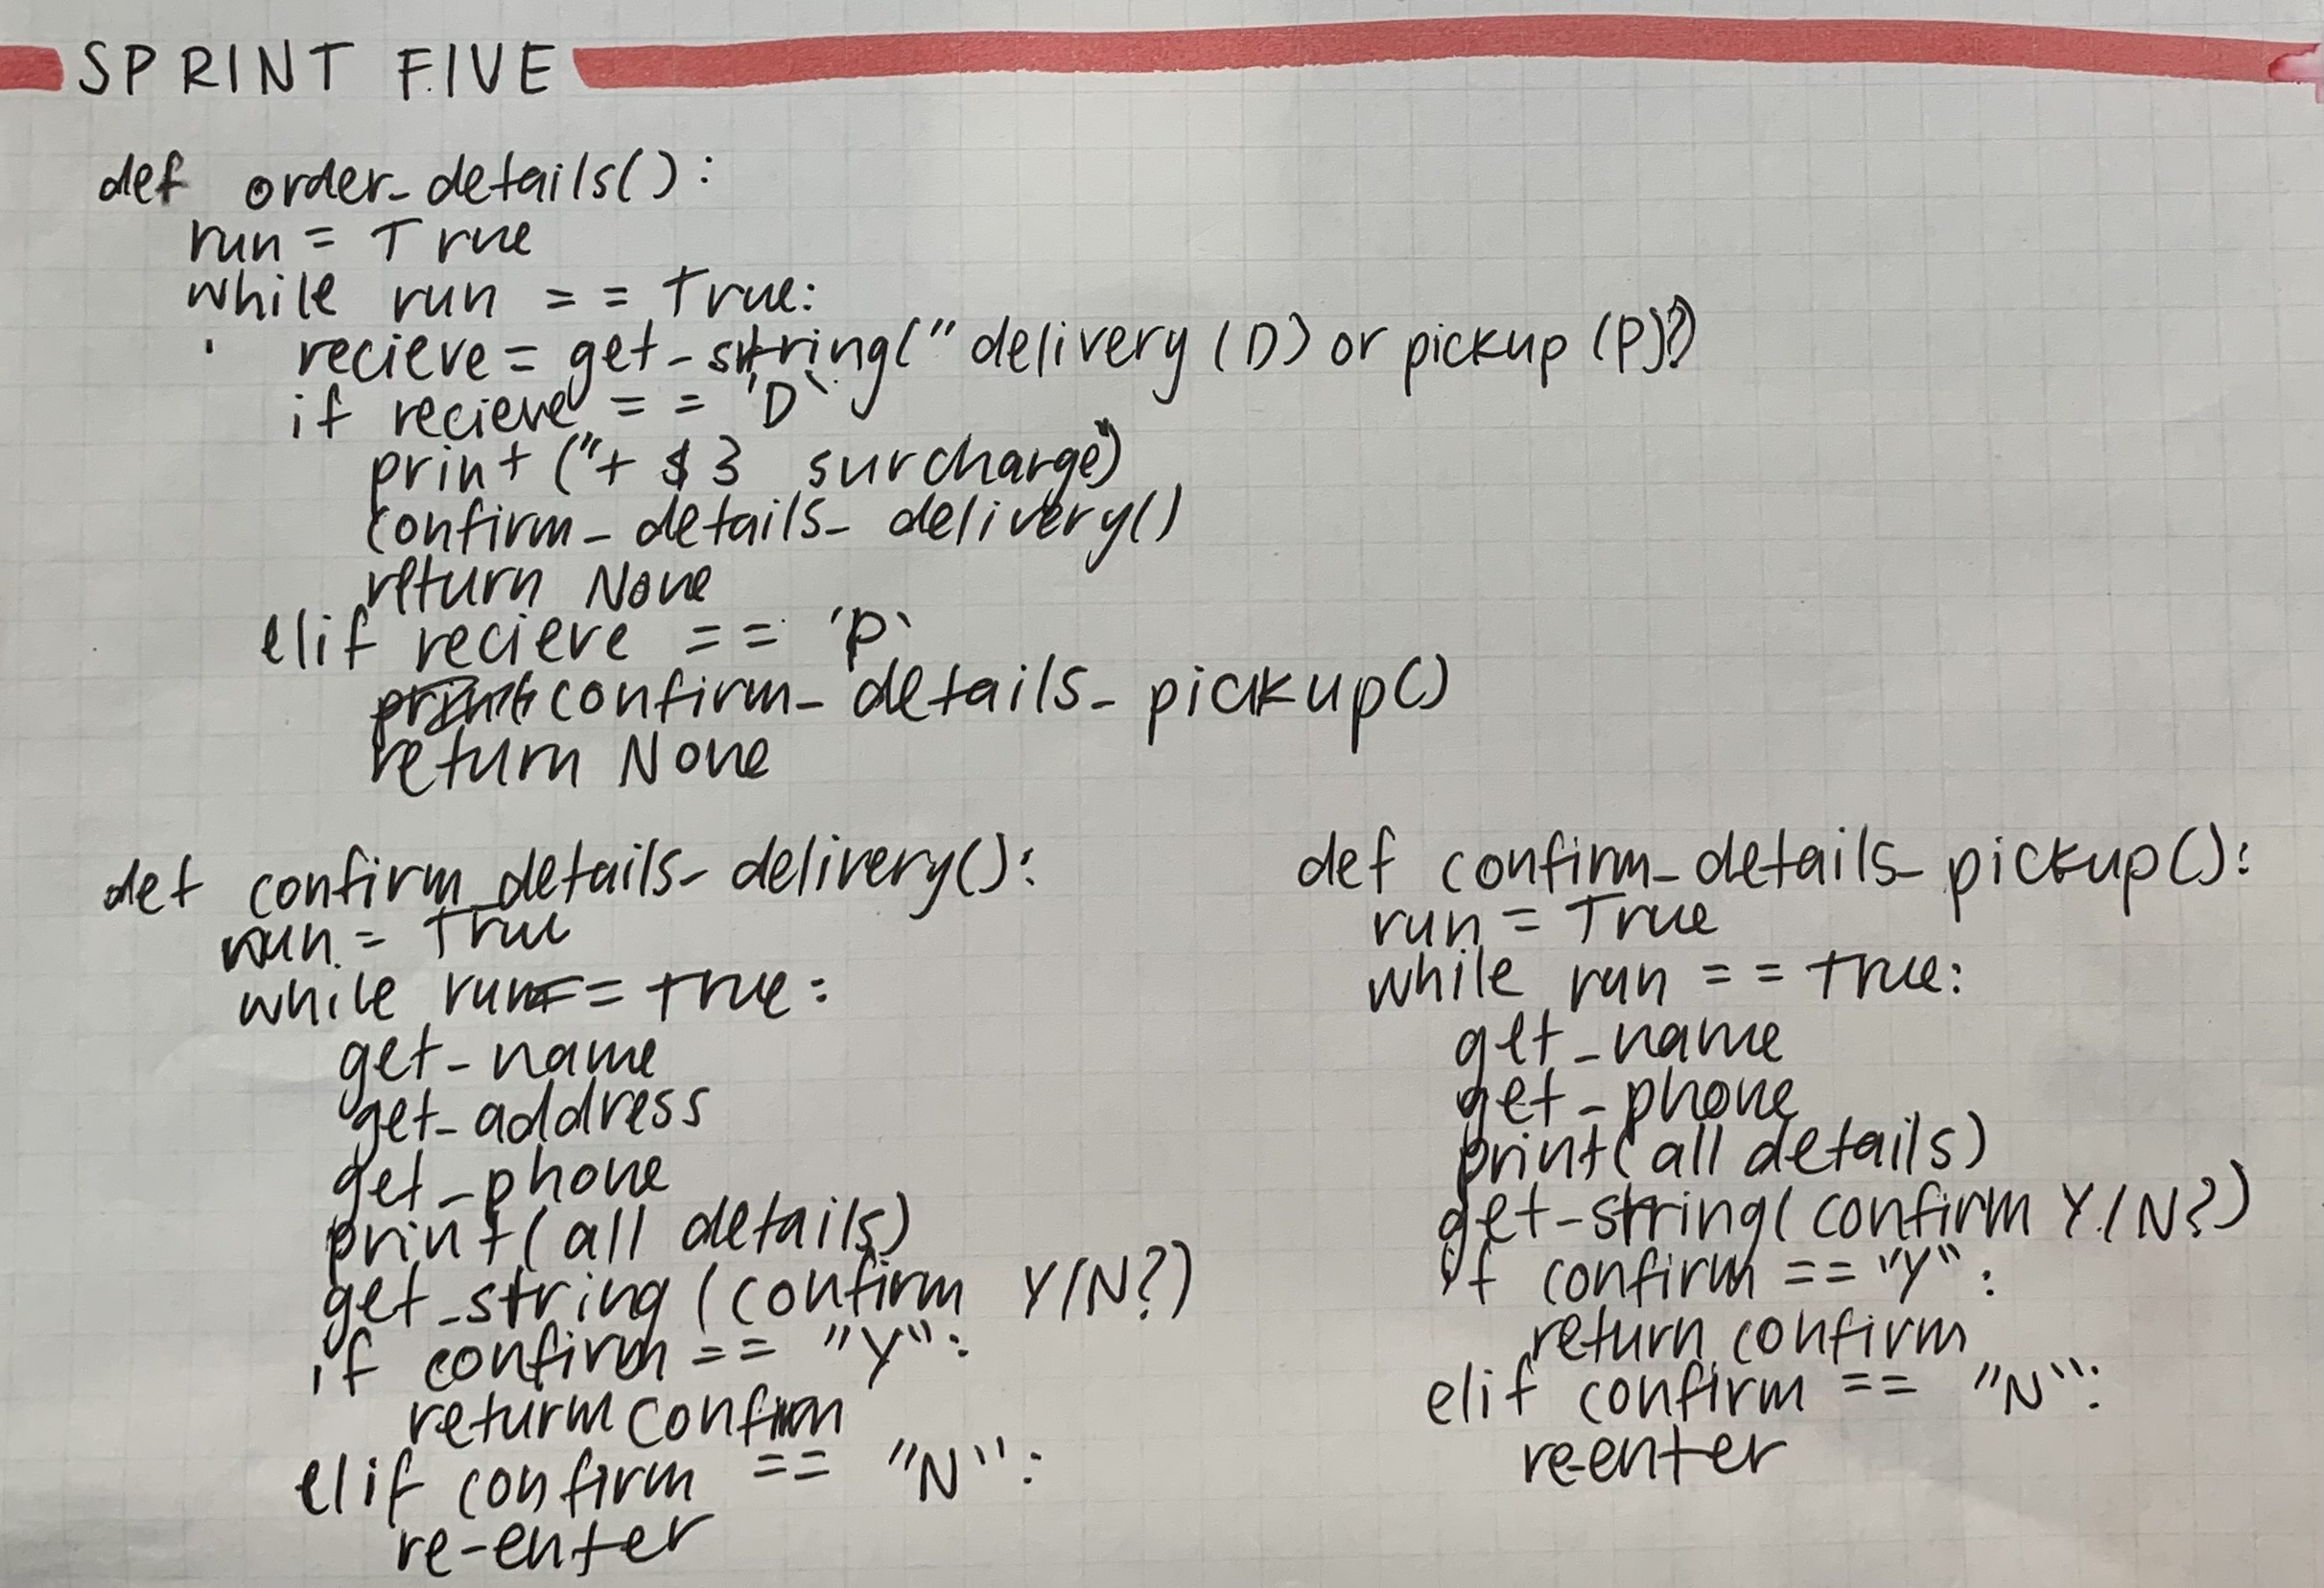 SPRINT FIVE
def order_details():
run = True
while run == True:
recieve = get_string("delivery (D) or pickup (P)?)
if recieve == 'D'
print ("+ $3 surcharge")
confirm_details_delivery()
return None
elif recieve == 'P'
confirm_details_pickup()
return None
def confirm_details_delivery():
run = True
while run == True:
get_name
get_address
get_phone
print(all details)
get_string (confirm Y/N?)
if confirm == "Y":
return confirm
elif confirm == "N":
re-enter
def confirm_details_pickup():
run = True
while run == True:
get_name
get_phone
print(all details)
get_string(confirm Y/N?)
if confirm == "Y":
return confirm
elif confirm == "N":
re-enter